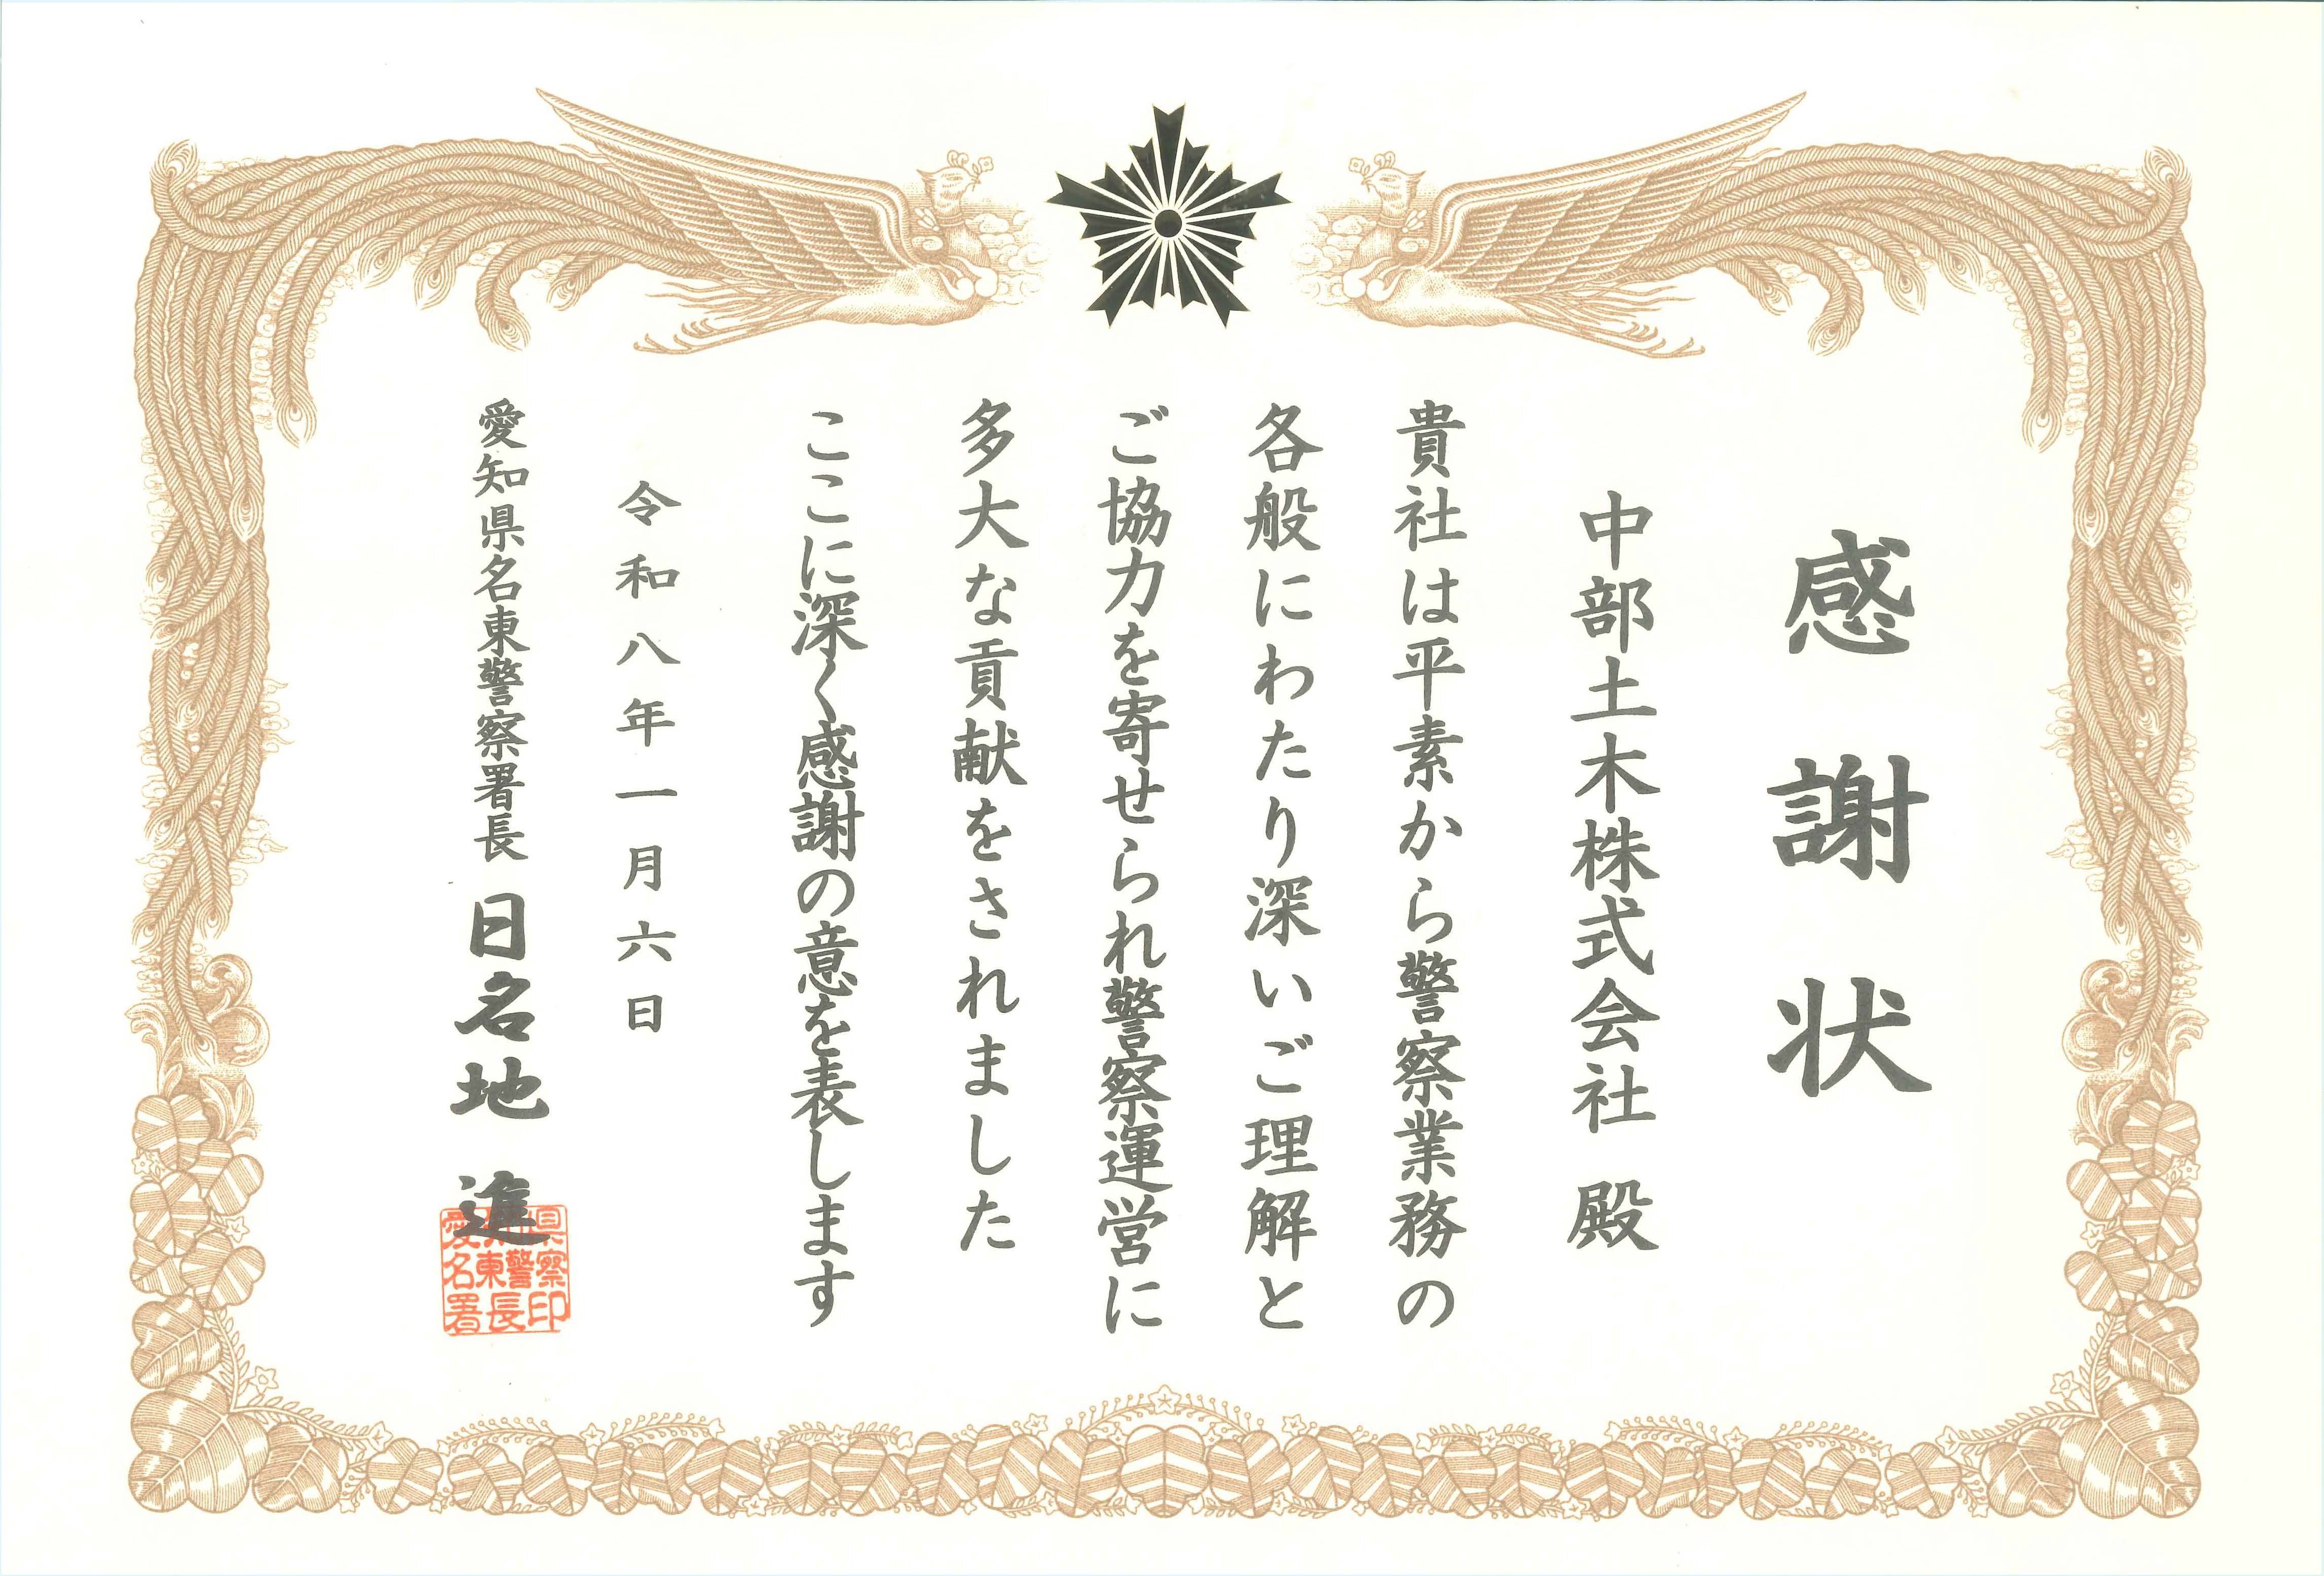 感謝状
中部土木株式会社 殿
貴社は平素から警察業務の
各般にわたり深いご理解と
ご協力を寄せられ警察運営に
多大な貢献をされました
ここに深く感謝の意を表します
令和八年一月六日
愛知県名東警察署長 日名地 進